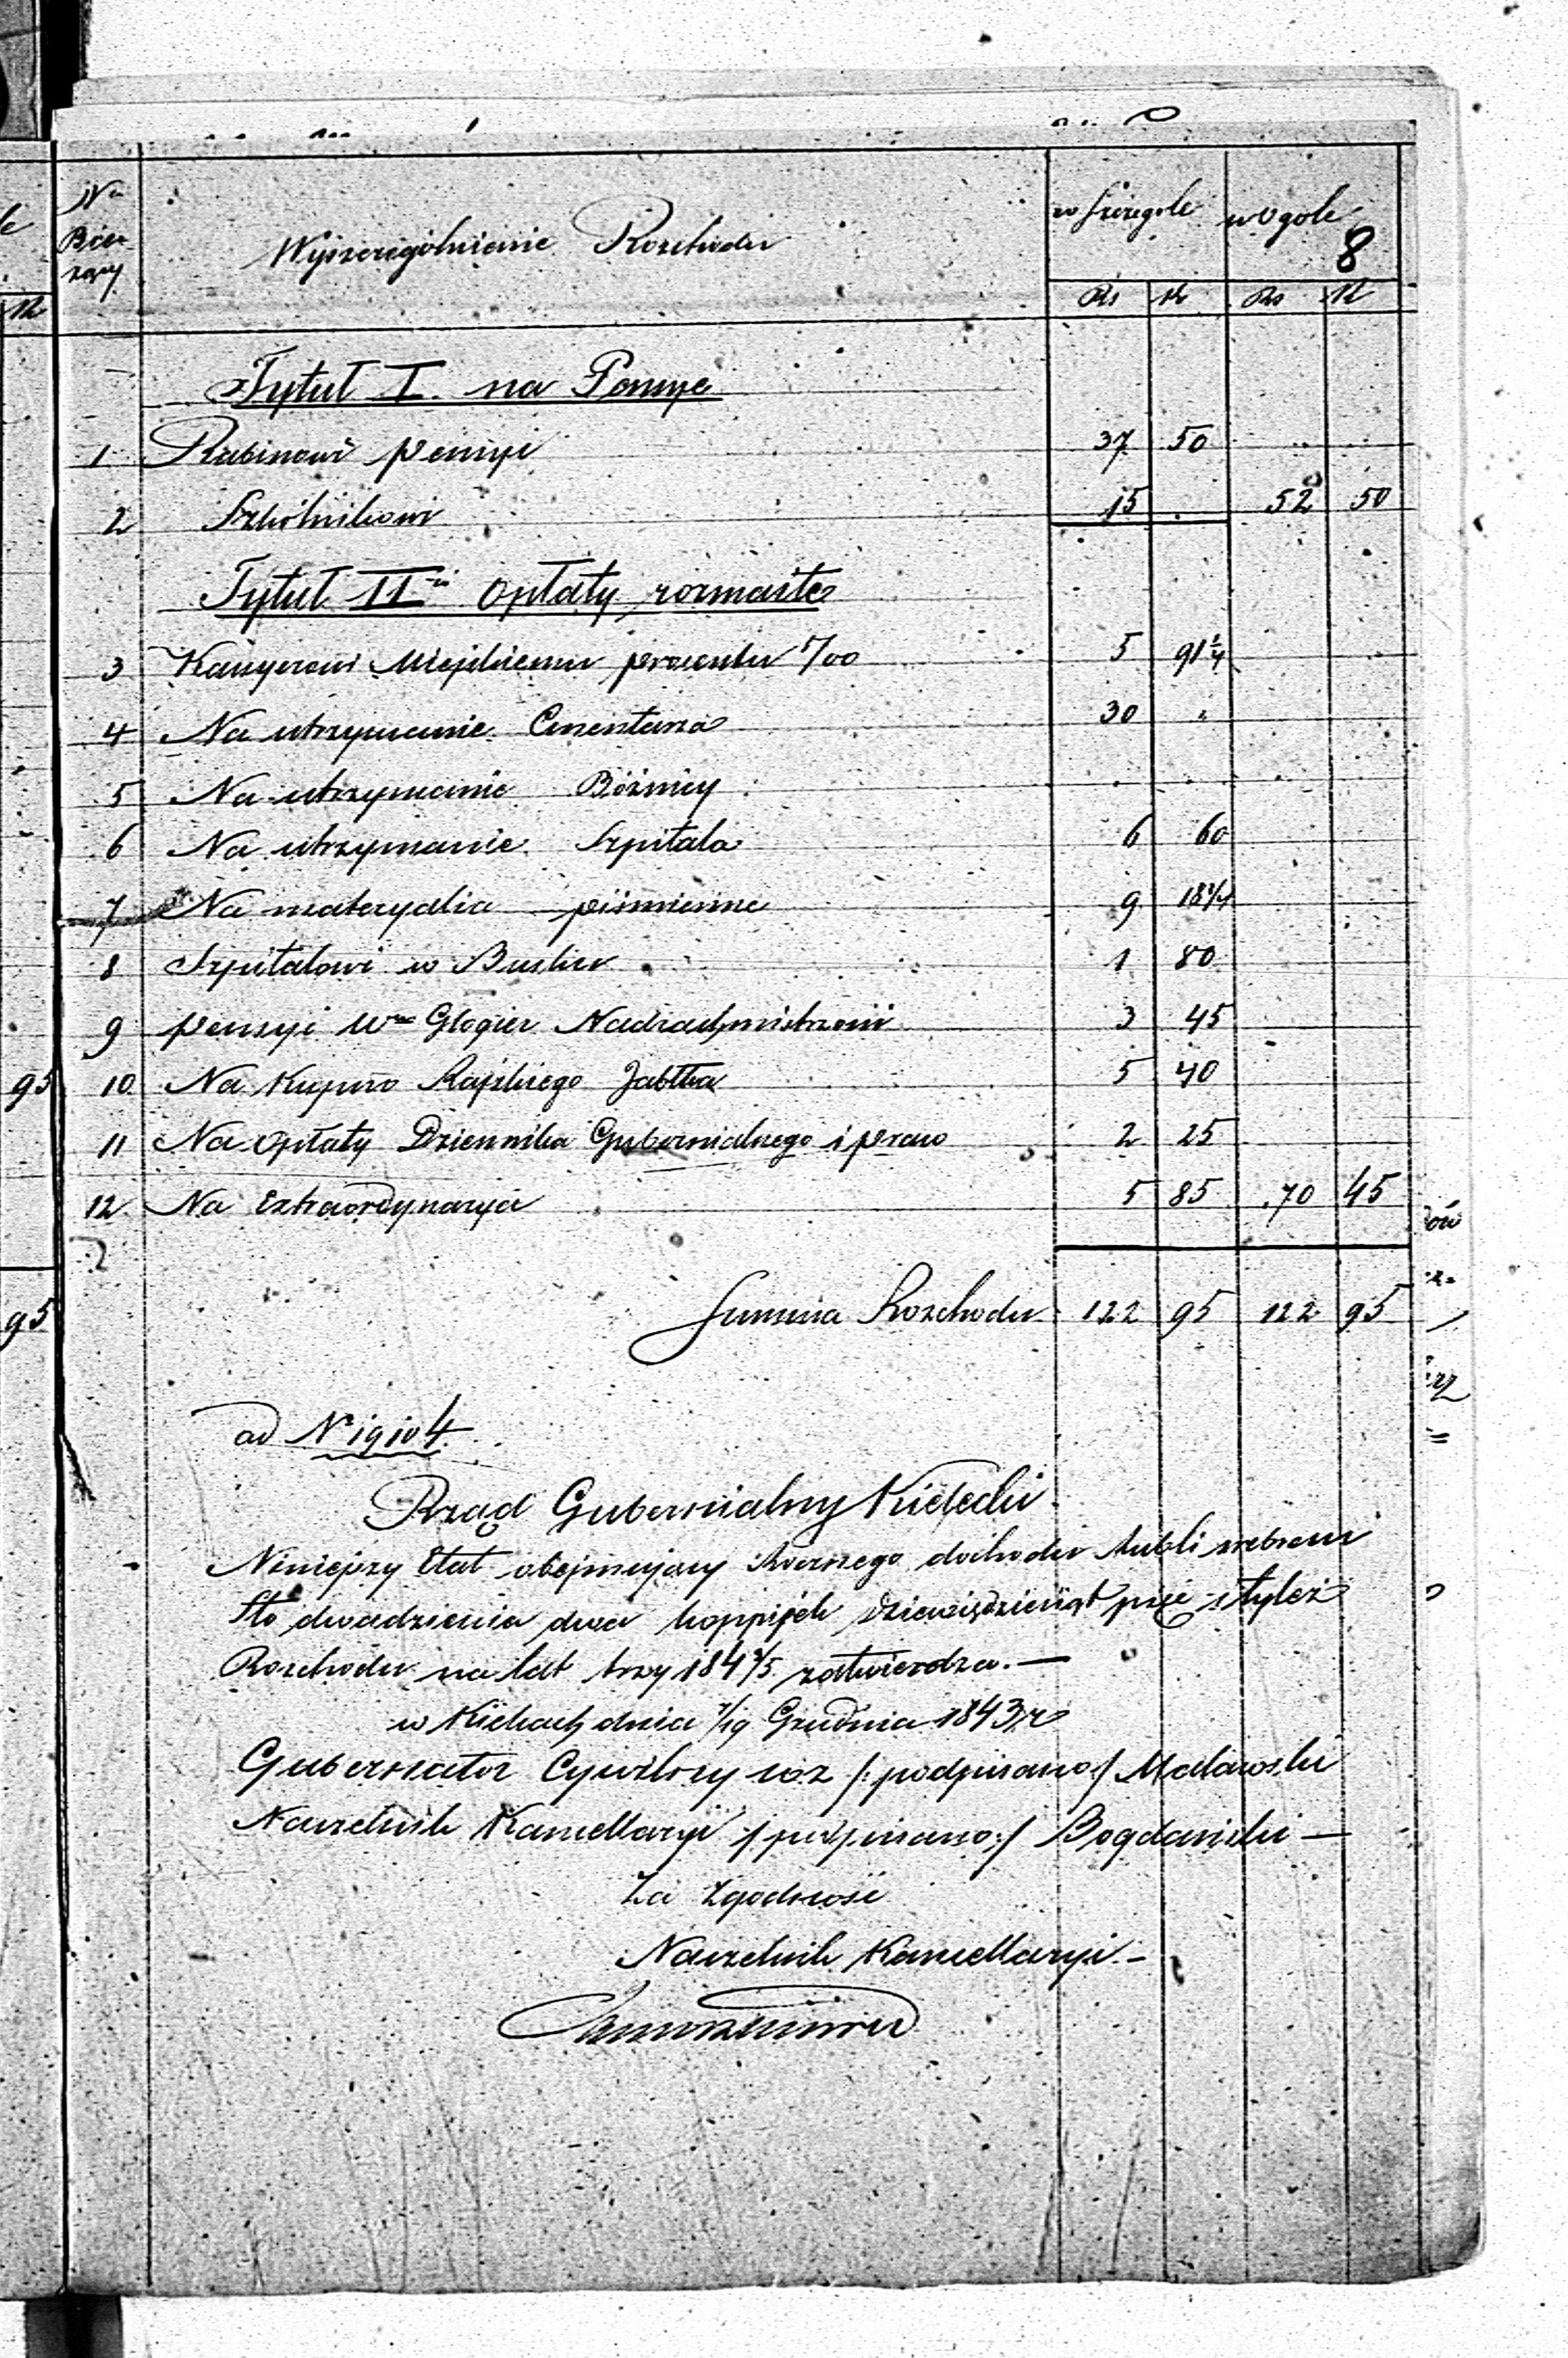 No
Bieżący
Wyszczególnienie Rozchodu
w Szczególe
w Ogóle
8
Rs K Rs K
Tytuł I. na Pensye
1 Rabinowi pensyi 37 50
2 Szkólnikowi 15 . 52 50
Tytuł II opłaty rozmaite
3 Kassyerowi Miejskiemu procentu 5 91 1/4
4 Na utrzymanie Cmentarza 30 "
5 Na utrzymanie Bóżnicy . . .
6 Na utrzymanie Szpitala 6 60
7 Na materyalia piśmienne 9 18 3/4
8 Szpitalowi w Busku 1 80
9 pensyi Wmu Glogier Nadrachmistrzowi 3 45
10 Na Kupno Rajskiego Jabłka 5 40
11 Na opłaty Dziennika Gubernialnego i praw 2 25
12. Na Extraordynarya 5 85 70 45
Summa Rozchodu 122 95 122 95
95
95
ad No 19104
Rząd Gubernialny Kielecki
Niniejszy Etat obejmujący Rocznego dochodu Rubli srebrem
Sto dwadzieścia dwa koppijek dziewięćdziesiąt pięć i tyleż
Rozchodu na lat trzy 184 3/5 zatwierdza. —
w Kielcach dnia 7/19 Grudnia 1843 r
Gubernator Cywilny /: podpisano :/ Malawski
Naczelnik Kancellaryi /: podpisano :/ Bogdański —
Za Zgodność
Naczelnik Kancellaryi. -